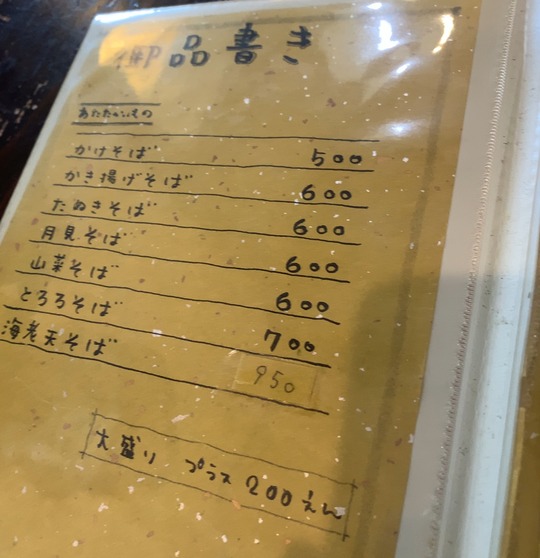 御品書き
あたたかいもの
かけそば 500
かき揚げそば 600
たぬきそば 600
月見そば 600
山菜そば 600
とろろそば 700
海老天そば 950
大盛り プラス 200えん